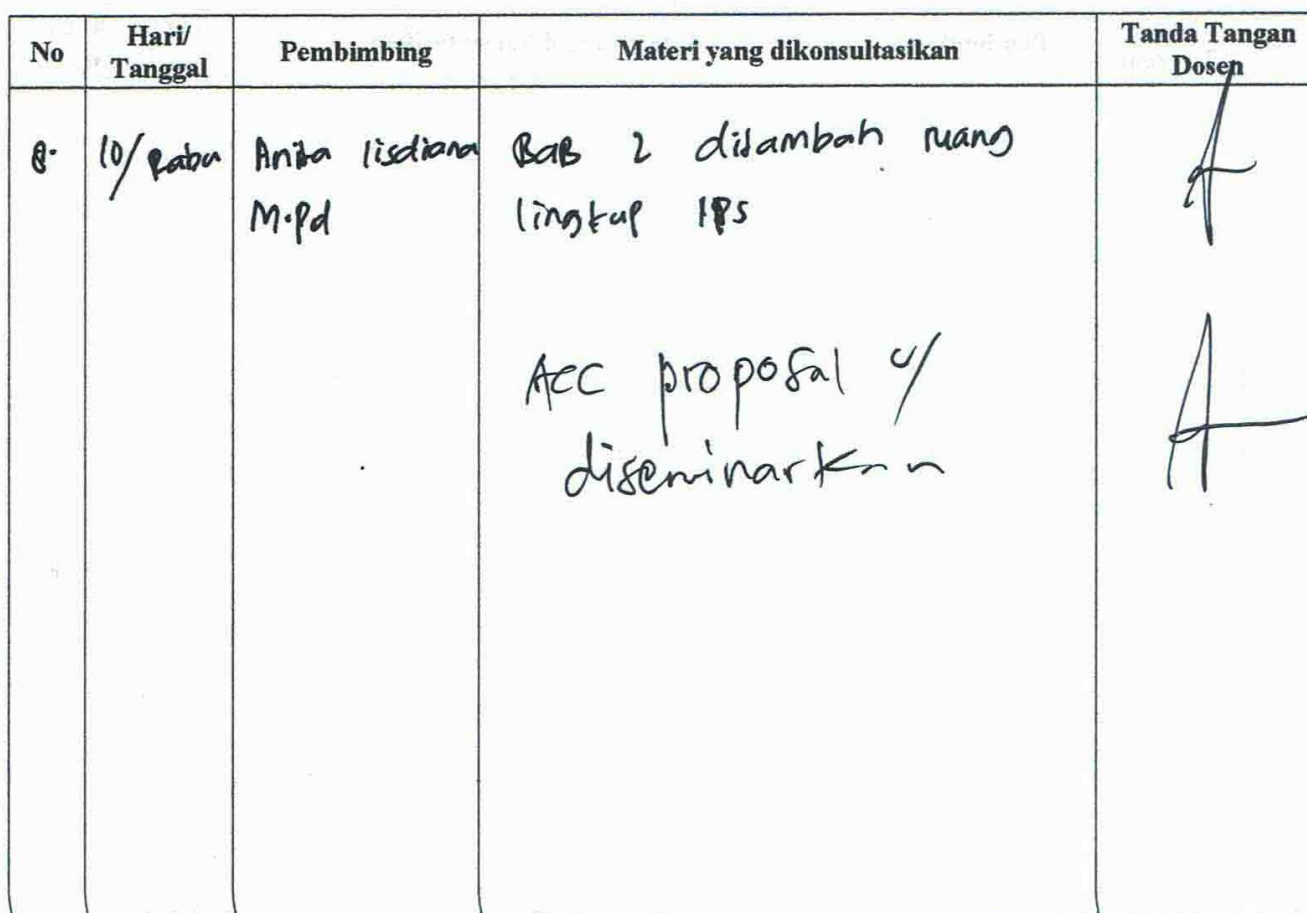 No Hari/ Tanggal Pembimbing Materi yang dikonsultasikan Tanda Tangan Dosen
8. 10/ Rabu Anita lisdiana BaB 2 ditambah ruang
M.Pd lingkup IPS
Acc proposal u/
diseminarkan